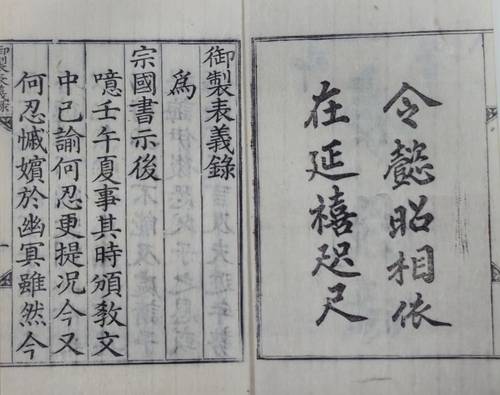 令懿昭相依
在延禧咫尺
御製表義錄
爲
宗國書示後
噫壬午夏事其時頒敎文
中已諭何忍更提况今又
何忍慽嬪於幽冥雖然今
御製表義錄
一